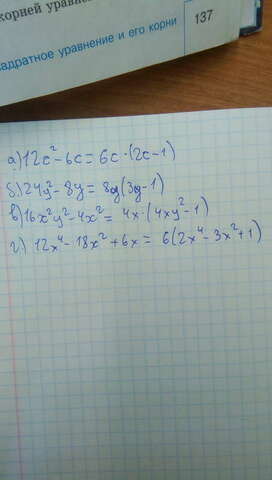 корней уравнен
вадратное уравнение и его корни
137
а) 12c² - 6c = 6c · (2c - 1)
б) 24y² - 8y = 8y (3y - 1)
в) 16x²y² - 4x² = 4x · (4xy² - 1)
г) 12x⁴ - 18x² + 6x = 6 (2x⁴ - 3x² + 1)